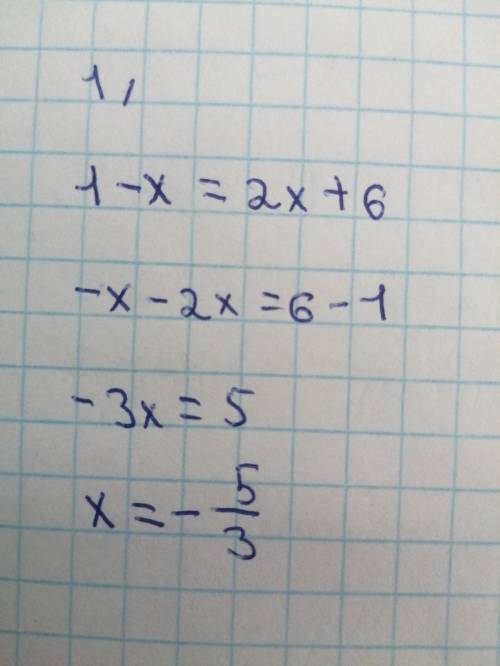 1,
1 - x = 2x + 6
-x - 2x = 6 - 1
-3x = 5
x = - 5/3